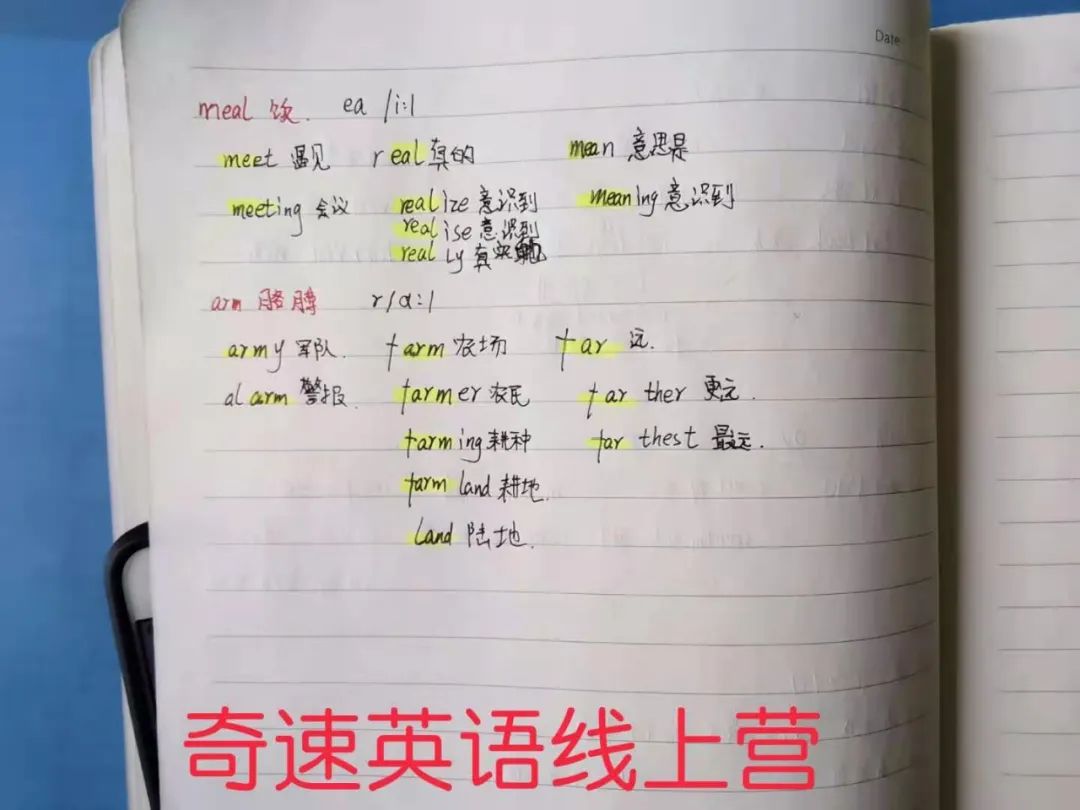 Date
meal 饭. ea /i:/
meet 遇见 real 真的 mean 意思是
meeting 会议 realize 意识到 meaning 意识到
realise 意识到
really 真实地
arm 胳膊 r/ɑ:/
army 军队. farm 农场 far 远.
alarm 警报. farmer 农民 far ther 更远.
farming 耕种 far thest 最远.
farm land 耕地.
land 陆地.
奇速英语线上营